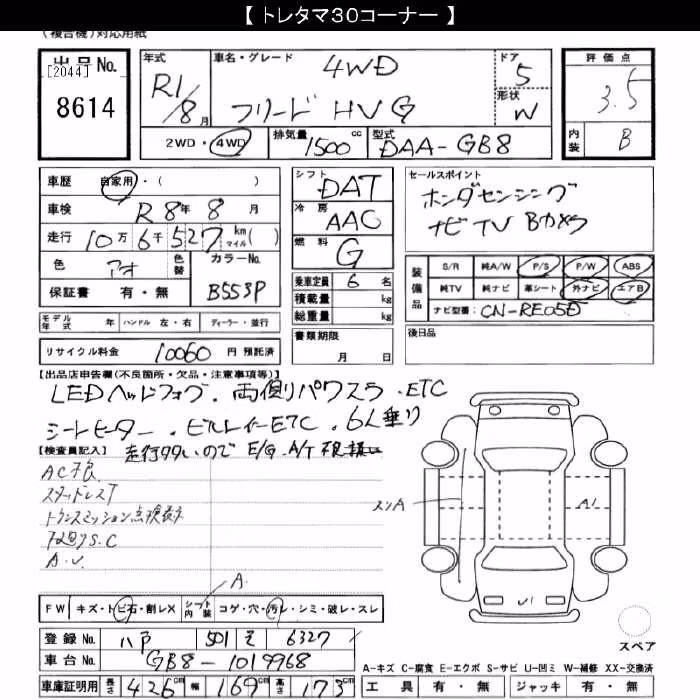 【 トレタマ30コーナー 】
(複合機)対応用紙
出品No.
[2044]
8614
年式
R1/8月
車名・グレード
4WD
フリード HV G
ドア
5
形状
W
評価点
3.5
内装
B
2WD・4WD
排気量
1500cc
型式
DAA-GB8
車歴 自家用・( )
車検 R8年8月
走行 10万6千527 km マイル( )
色 アオ 色替 カラーNo.
B553P
保証書 有・無
シフト
DAT
冷房
AAC
燃料
G
乗車定員 6名
積載量 kg
総重量 kg
書類期限
月 日
セールスポイント
ホンダセンシング
ナビTV Bカメラ
装備品
S/R 純A/W P/S P/W ABS
純TV 純ナビ 革シート 外ナビ エアB
ナビ型番: CN-RE05D
後日品
モデル年式 年 ハンドル 左・右 ディーラー・並行
リサイクル料金 10060 円 預託済
【出品店申告欄(不良箇所・欠品・注意事項等)】
LEDヘッドフォグ・両側パワスラ・ETC
シートヒーター・ビルトインETC・6人乗り
【検査員記入】
走行多いので E/G・A/T
AC不良
スタッドレスT
トランスミッション点検表示
下廻りS.C
A.U
A
スリA
A1
U1
FW キズ・ト ビ石・割レX シフト 内装 コゲ・穴・汚レ・シミ・破レ・スレ
スペア
登録No. 八戸 501 そ 6327
車台No. GB8-1019968
A-キズ C-腐食 E-エクボ S-サビ U-凹ミ W-補修 XX-交換済
車庫証明用 長さ 426cm 幅 169cm 高さ 173cm
工具 有・無 ジャッキ 有・無